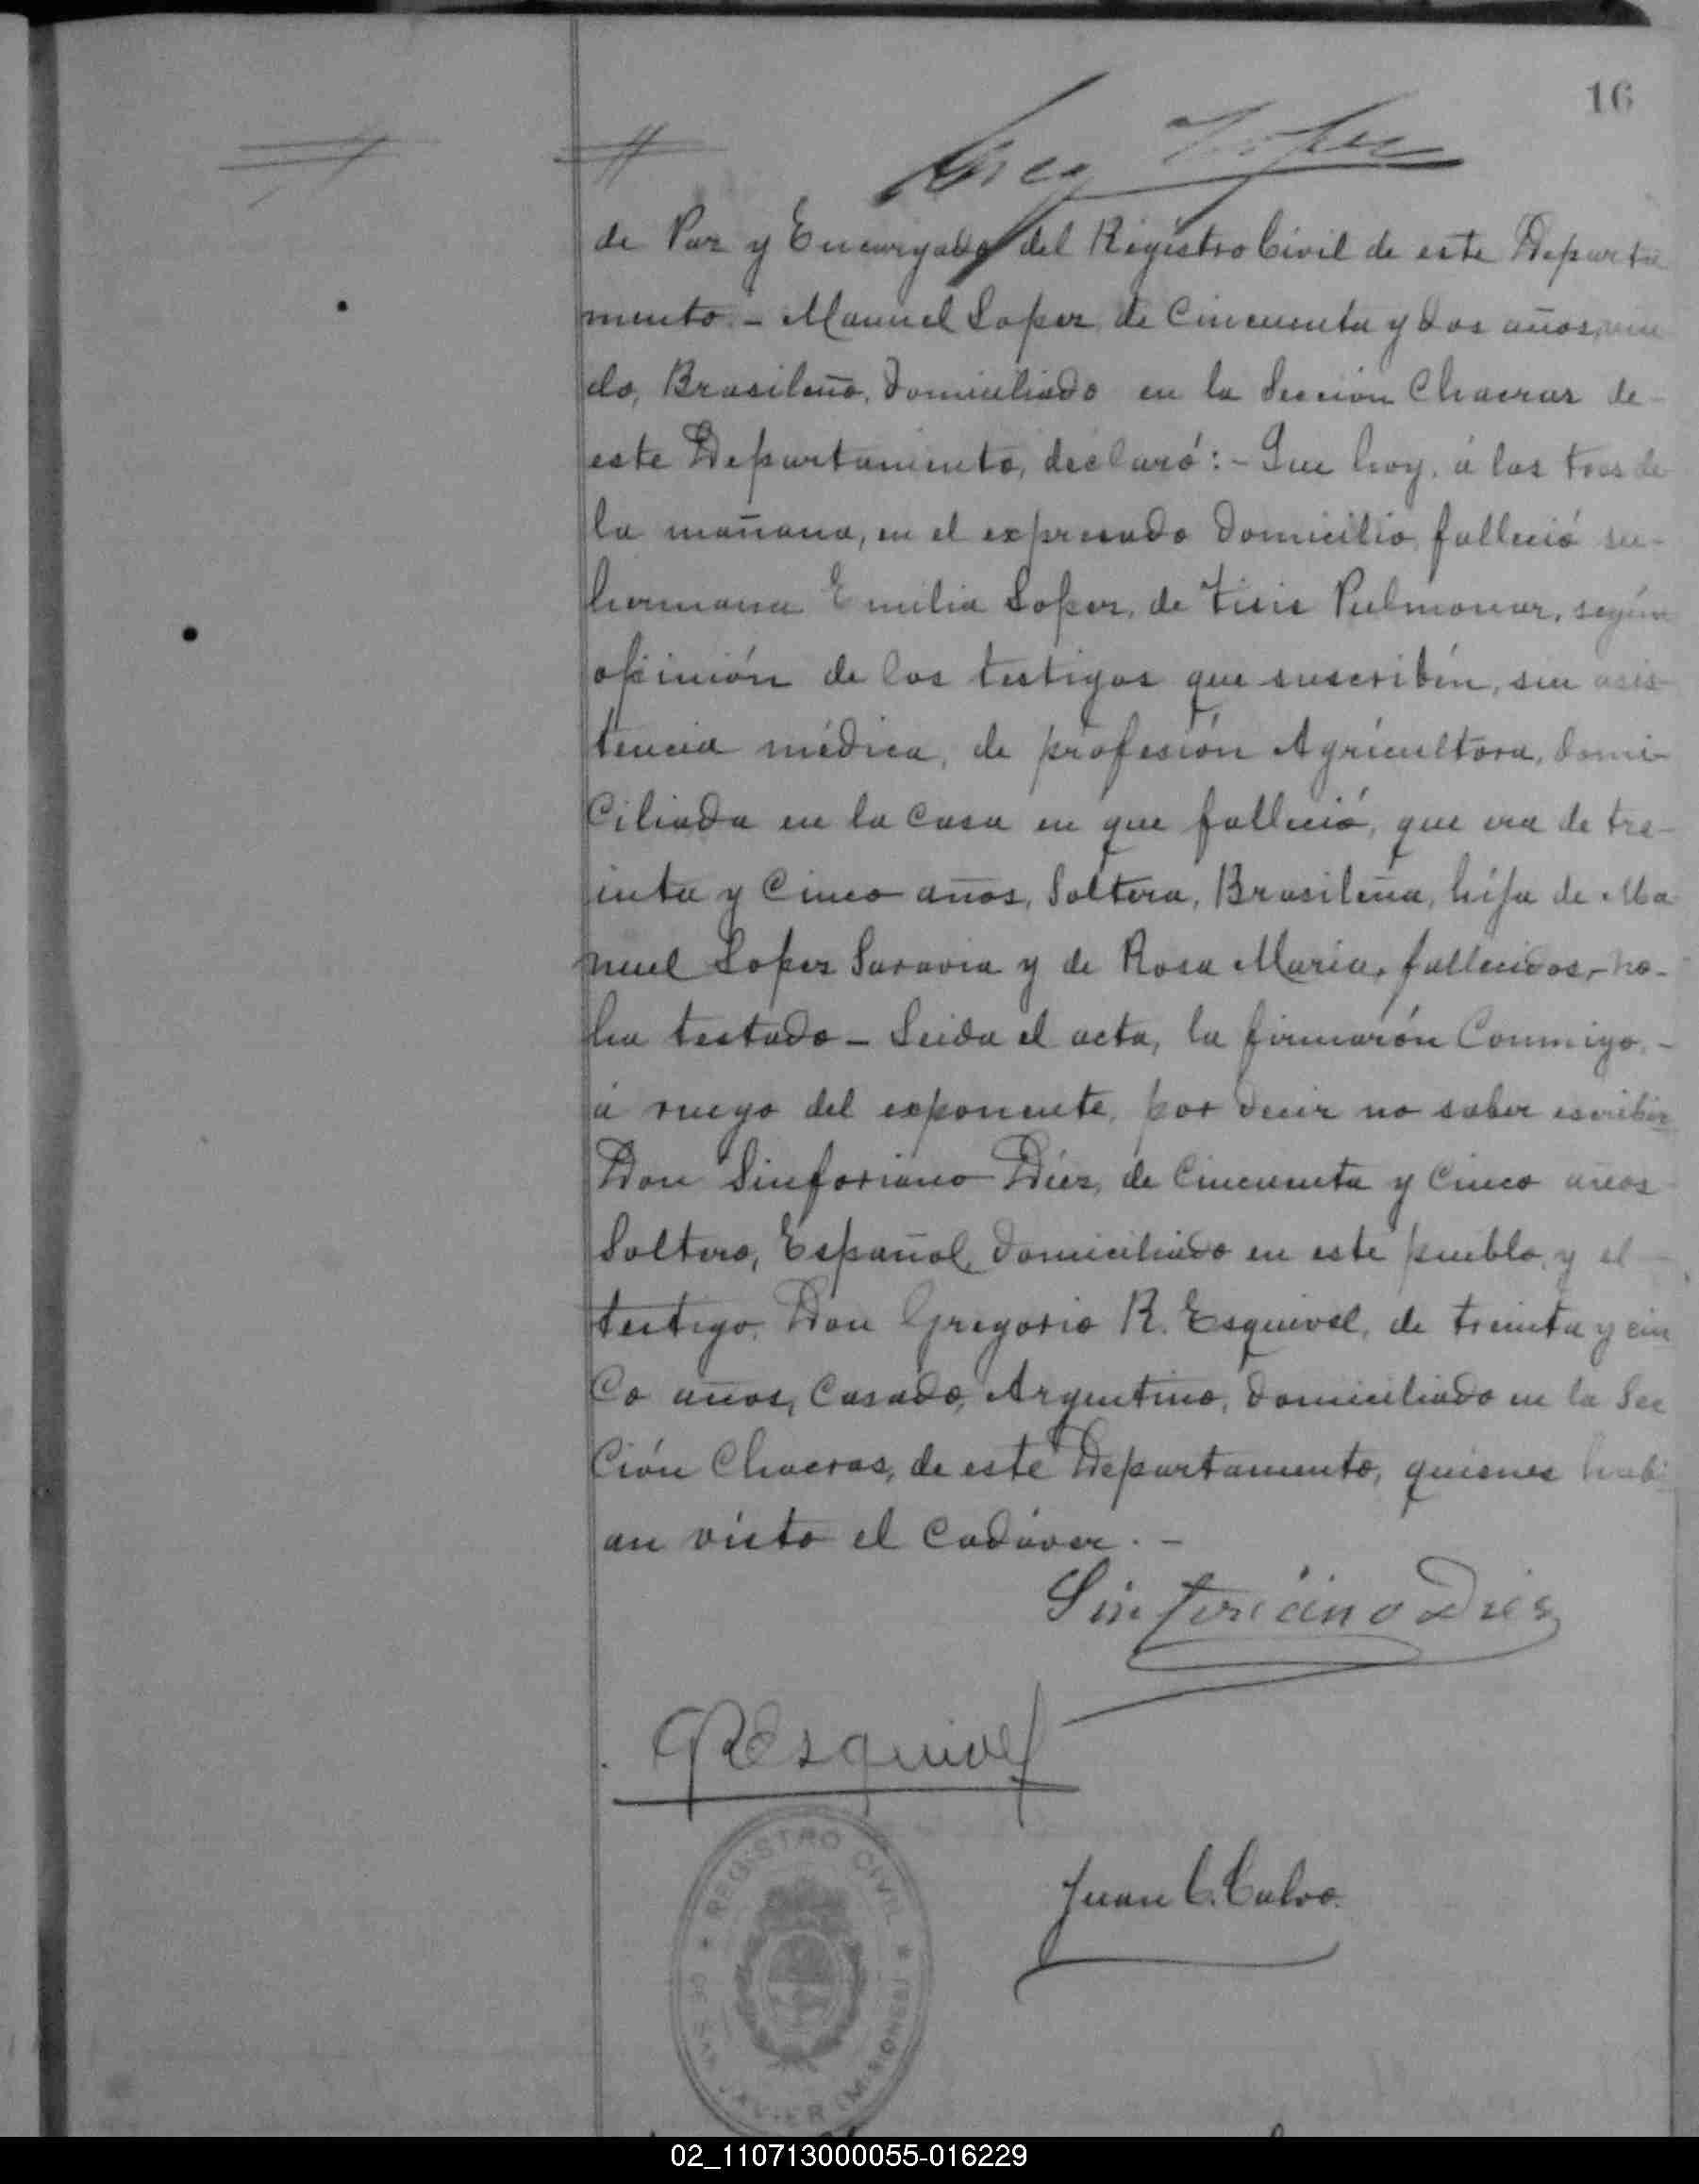 16
de Paz y Encargado del Registro Civil de este Departa
mento. - Manuel Lopez, de Cincuenta y dos años, viu
do, Brasileño, domiciliado en la Sección Chacras de -
este Departamento, declaró: - Que hoy, á las tres de
la mañana, en el expresado domicilio, falleció su -
hermana Emilia Lopez, de Tisis Pulmonar, según
opinión de los testigos que suscribén, sin asis
tencia médica, de profesión Agricultora, domi-
Ciliada en la Casa en que falleció, que era de tre-
inta y Cinco años, Soltera, Brasileña, hija de Ma
nuel Lopez Saravia y de Rosa Maria, fallecidos, - no -
ha testado - Leida el acta, la firmarón Conmigo, -
á ruego del exponente, por decir no saber escribir
Don Sinforiano Diez, de Cincuenta y Cinco años
Soltero, Español, domiciliado en este pueblo, y el
testigo, Don Gregorio R. Esquivel, de treinta y cin
Co años, Casado, Argentino, domiciliado en la Sec
Ción Chacras, de este Departamento, quienes habi
an visto el Cadáver. -
Sinforiano Diez
GREsquivel
Juan C. Calvo.
REGISTRO CIVIL
DE SAN JAVIER (MISIONES)
02_110713000055-016229